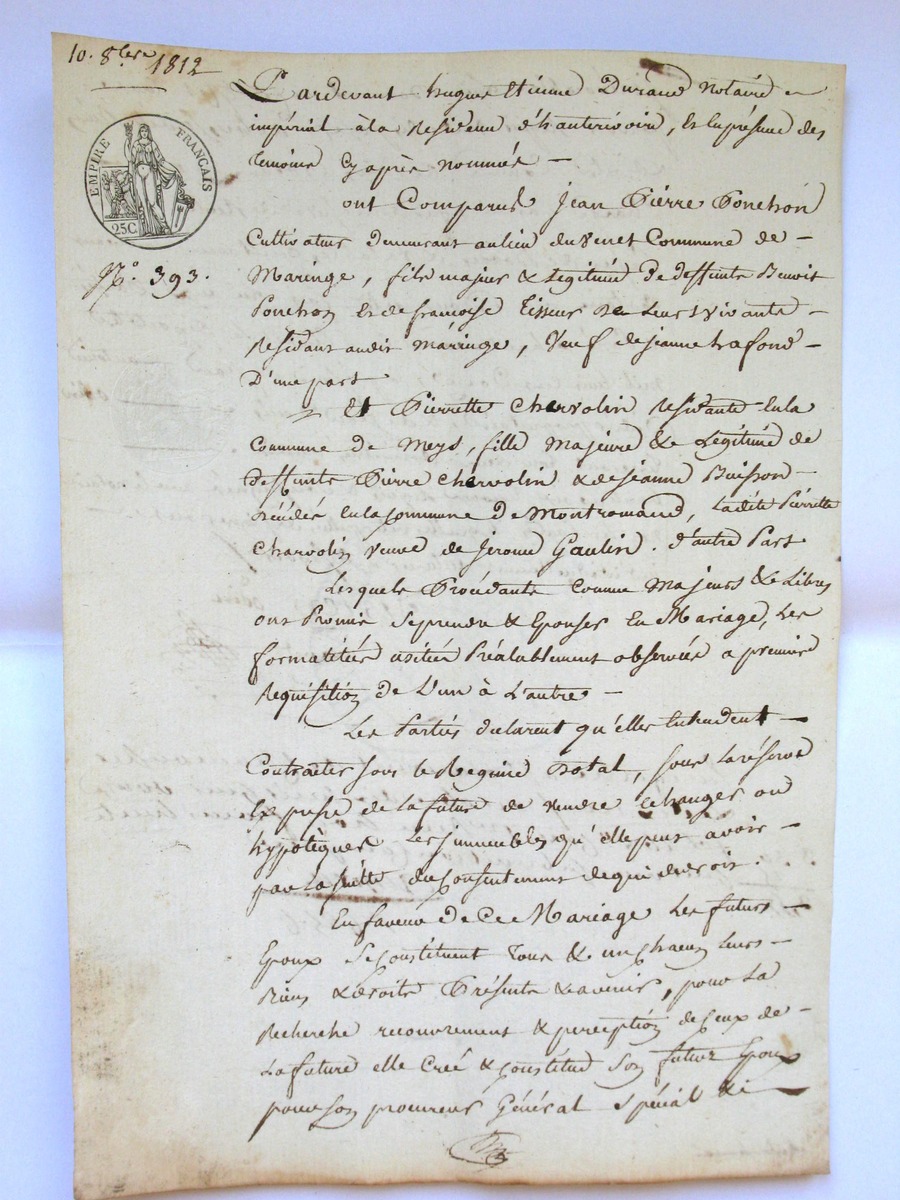 10. 8bre 1812
EMPIRE FRANÇAIS
25C.
N.° 393.
Pardevant hugues Etienne Durand Notaire
impérial à la Residence d'hauterivoire, En la présence des
temoins Cyaprès Nommés —
ont Comparus Jean Pierre Ponchon
Cultivateur demeurant au lieu du Venet Commune de –
Maringe, fils majeur & Légitime de deffunts Benoit
Ponchon Et de françoise Tisseur de Leurs vivants –
Residants audit Maringe, Veuf de jeanne –
D'une part
Et Pierrette Charvolin Residante En la
Commune de Meys, fille Majeure & Légitime de
deffunts Pierre Charvolin & de jeanne Buisson –
décédés En la commune de Montromand, Ladite Pierrette
Charvolin veuve de Jérome Gaulin. d'autre Part
Lesquels Procédants Comme Majeurs & Libres
ont Promis Se prendre & Epouser En Mariage, Les
formalités usitées Préalablement observées a premiere
Requisition de L'un à L'autre —
Les Parties declarent qu'elles Entendent —
Contracter sous le Regime Dotal, sous La réserve
Expresse de la future de vendre Echanger ou
hypotèquer Les jmmeubles qu'elle peut avoir –
par La suitte du Consentement de qui de droit.
En faveur de Ce Mariage Les futurs –
Epoux Se Constituent Tous & un chacun Leurs –
Biens & droits Présents & avenir, pour La
Recherche recouvrement & perception de Ceux de –
La future elle Creé & Constitue Son futur Epoux
pour Son procureur Général Spécial &